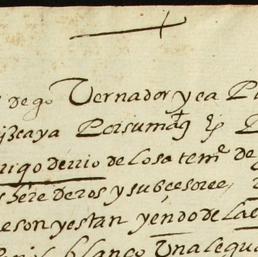 de go Vernador y ca
izcaya Por su mag
rigo de rrio de losa ten de
s here deros y subcesores
eson y estan yendo de la
blanco Una legua